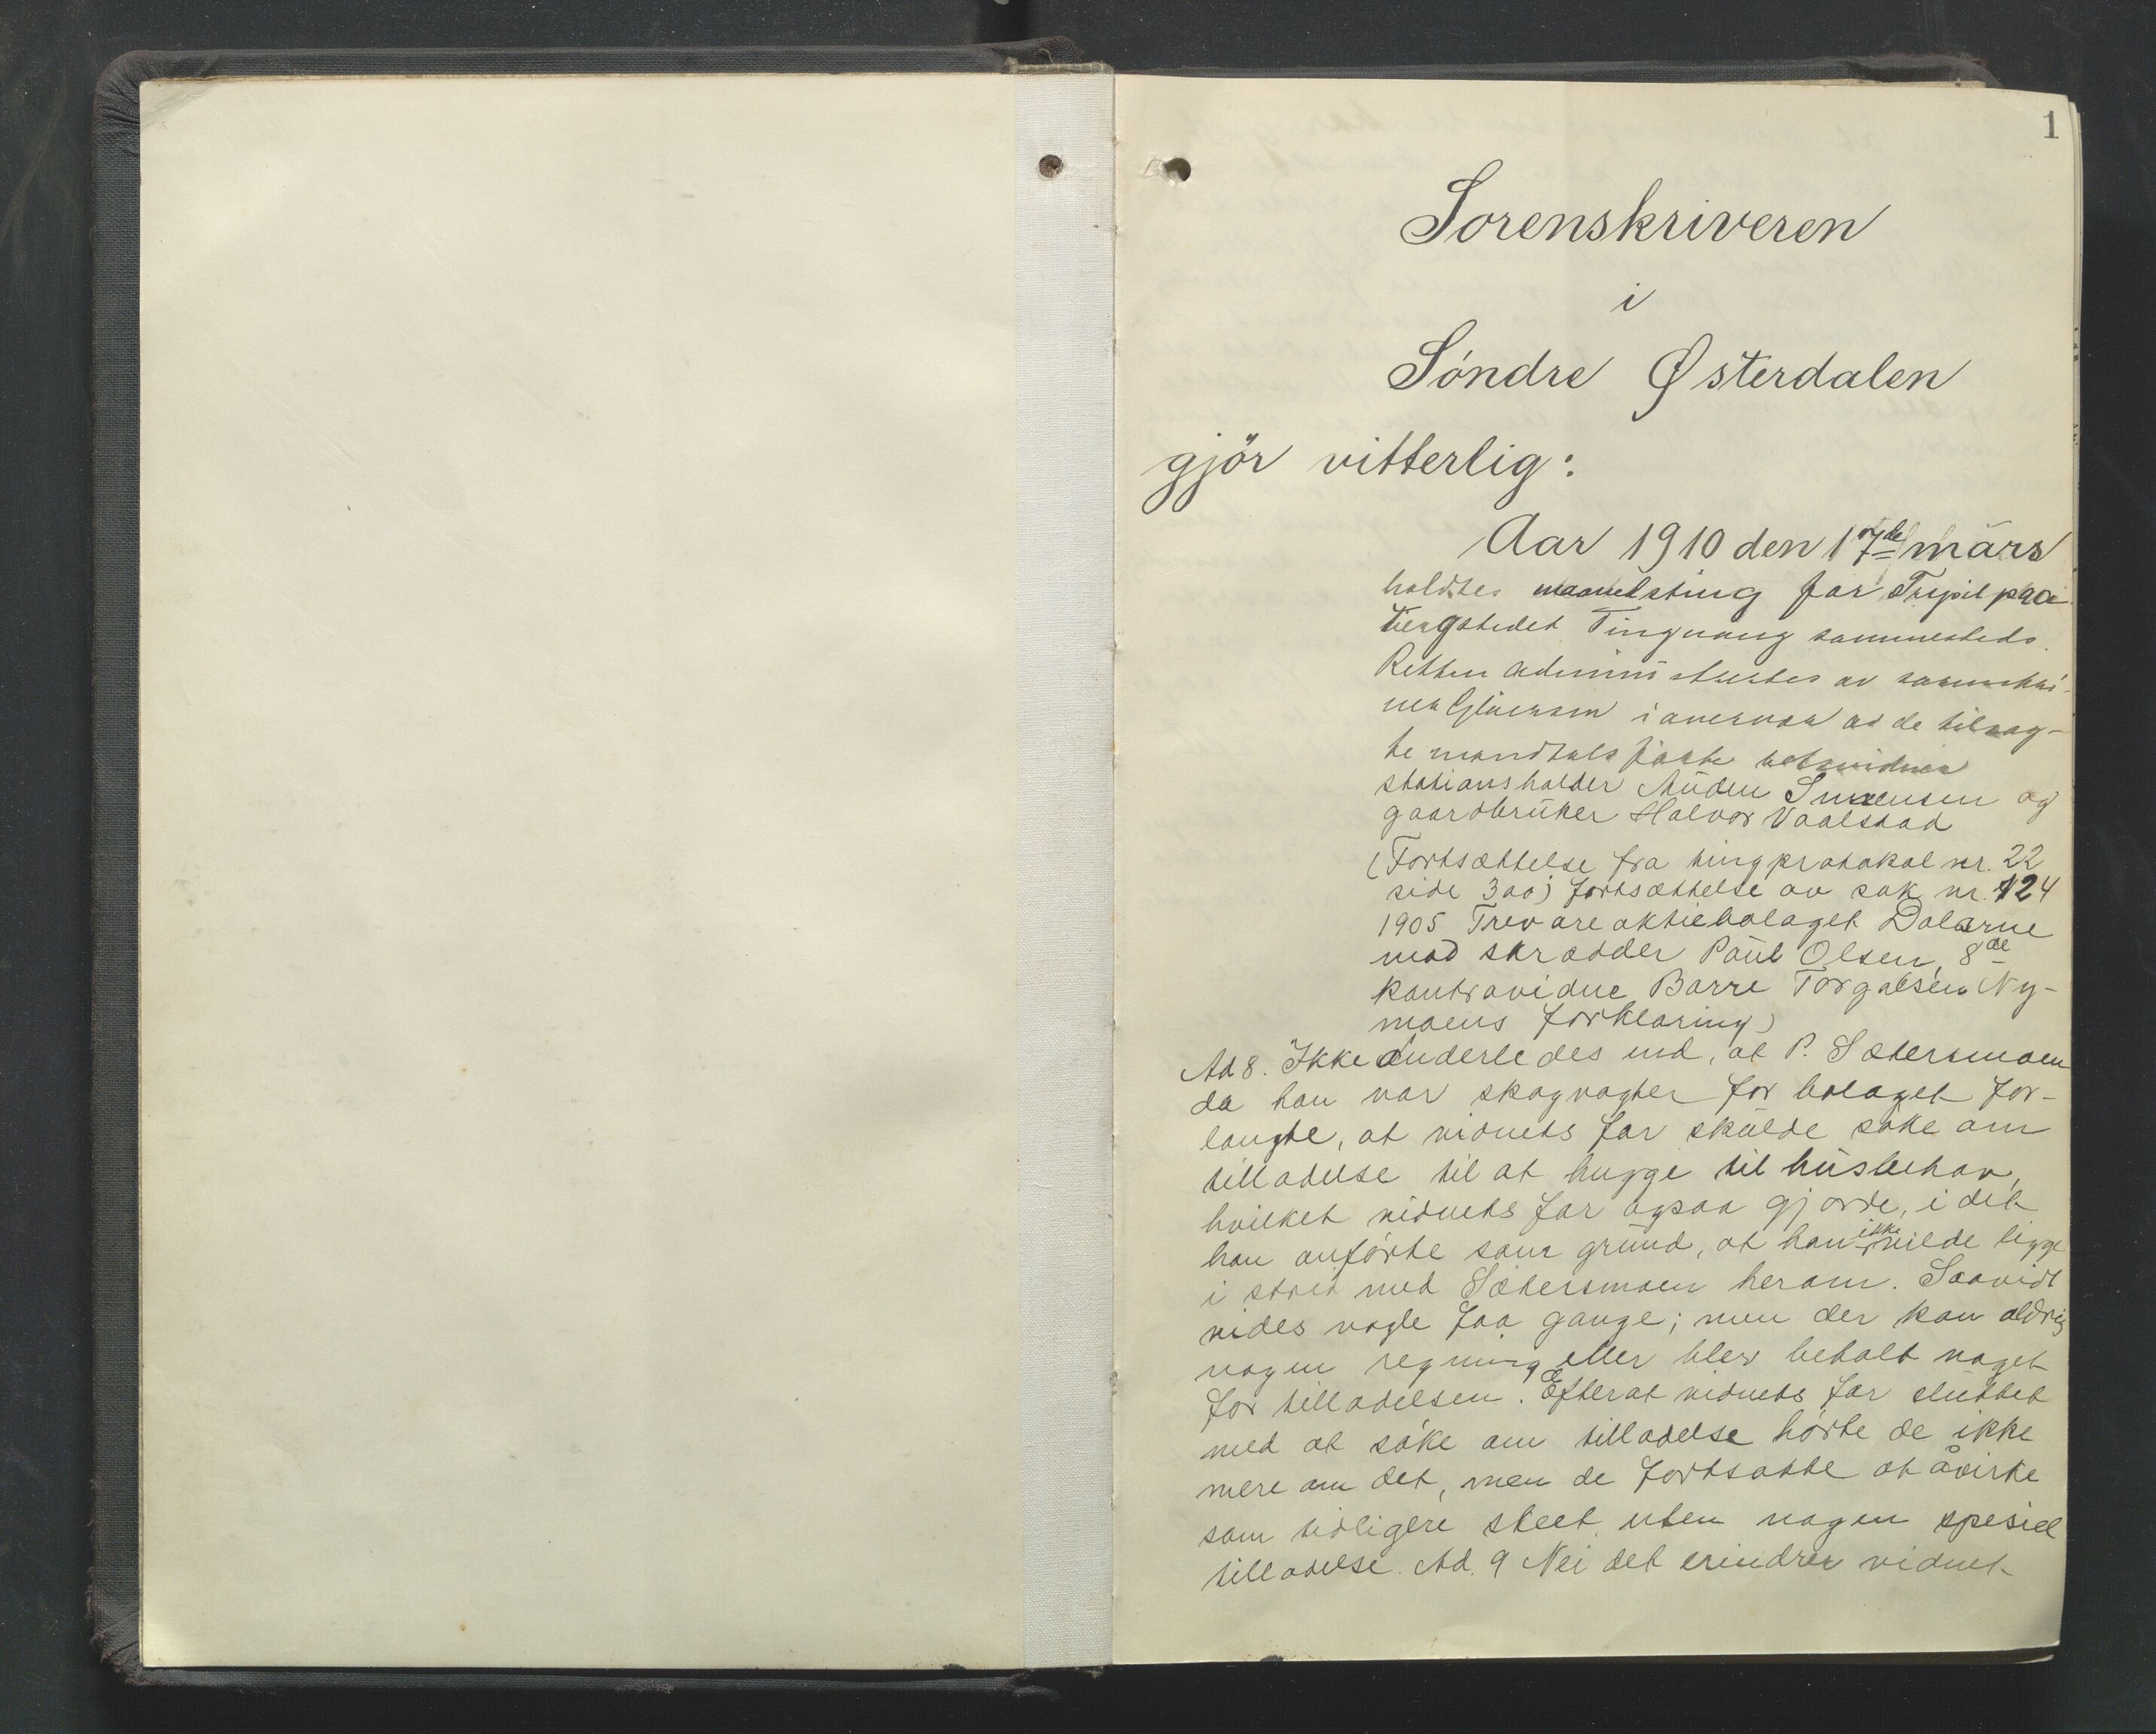 1
Sorenskriveren
i
Söndre Østerdalen
gjör vitterlig:
Aar 1910 den 17de mars
holdtes maanetsting for Trysil paa
tingstedet Tingvang sammesteds.
Retten administrertes av sorenskri-
ver i overvær av de tilsag-
te mandtalsførte retsvidner
stationsholder Auden Simensen og
gaardbruker Halvor Vaalstad
(Fortsættelse fra tingprotokol nr. 22
side 300) fortsættelse av sak nr. 124
1905 Trevareaktiebolaget Dalarne
mod skrædder Paul Olsen, 8de
kontravidne Barre Torgalsen Ny-
moens forklaring)
Ad 8. Ikke anderledes end, at P. Sætersmoen
da han var skogvagter for bolaget for-
langte, at vidnets far skulde søke om
tilladelse til at hugge til husbehov,
hvilket vidnets far ogsaa gjorde, i det
han anførte som grund, at han ikke vilde ligge
i streit med Sætersmoen herom. Saavidt
vides nogle faa gange; men der kom aldrig
nogen regning eller blev betalt noget
for tilladelsen. Efterat vidnets far sluttet
med at søke om tilladelse hørte de ikke
mere om det, men de fortsatte at åvirke
som tidligere skeet uten nogen spesiel
tilladelse. Ad. 9 Nei det erindrer vidnet